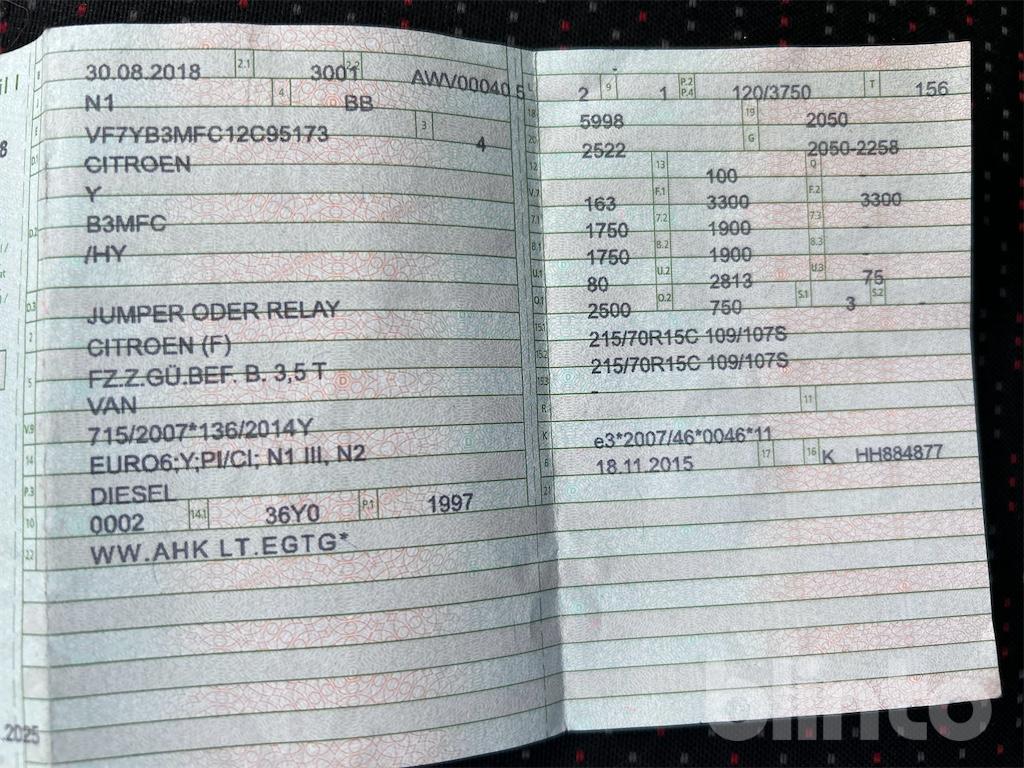 30.08.2018 2.1 3001 2.2 AWV00040 5
N1 4 BB
VF7YB3MFC12C95173 3 4
CITROEN
Y
B3MFC
/HY
JUMPER ODER RELAY
CITROEN (F)
FZ.Z.GÜ.BEF. B. 3,5 T
VAN
715/2007*136/2014Y
EURO6;Y;PI/CI; N1 III, N2
DIESEL
0002 14.1 36Y0 P.1 1997
WW.AHK LT.EGTG*
.2025
2 9 1 P.2 P.4 120/3750 T 156
5998 19 2050
2522 G 2050-2258
13 100 Q -
163 F.1 3300 F.2 3300
1750 7.2 1900 7.3 -
1750 8.2 1900 8.3 -
80 U.2 2813 U.3 75
2500 O.2 750 S.1 3 S.2 -
215/70R15C 109/107S
215/70R15C 109/107S
-
11
e3*2007/46*0046*11
18.11.2015 17 16 K HH884877
blinto